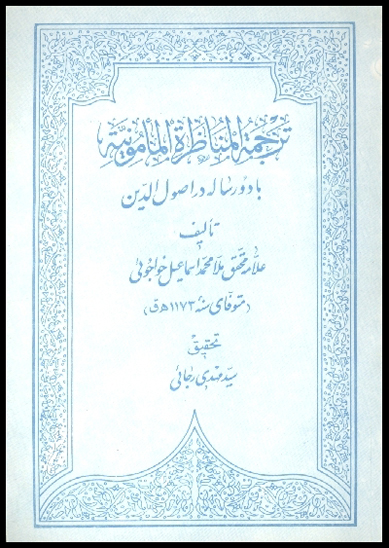 ترجمة المناظرة المأمونیّة
با دو رساله در اصول الدین
تألیف
علامه محقق ملا محمد اسماعیل خواجوئی
(متوفای سنه ۱۱۷۳ ه‍ ق)
تحقیق
سید مهدی رجائی